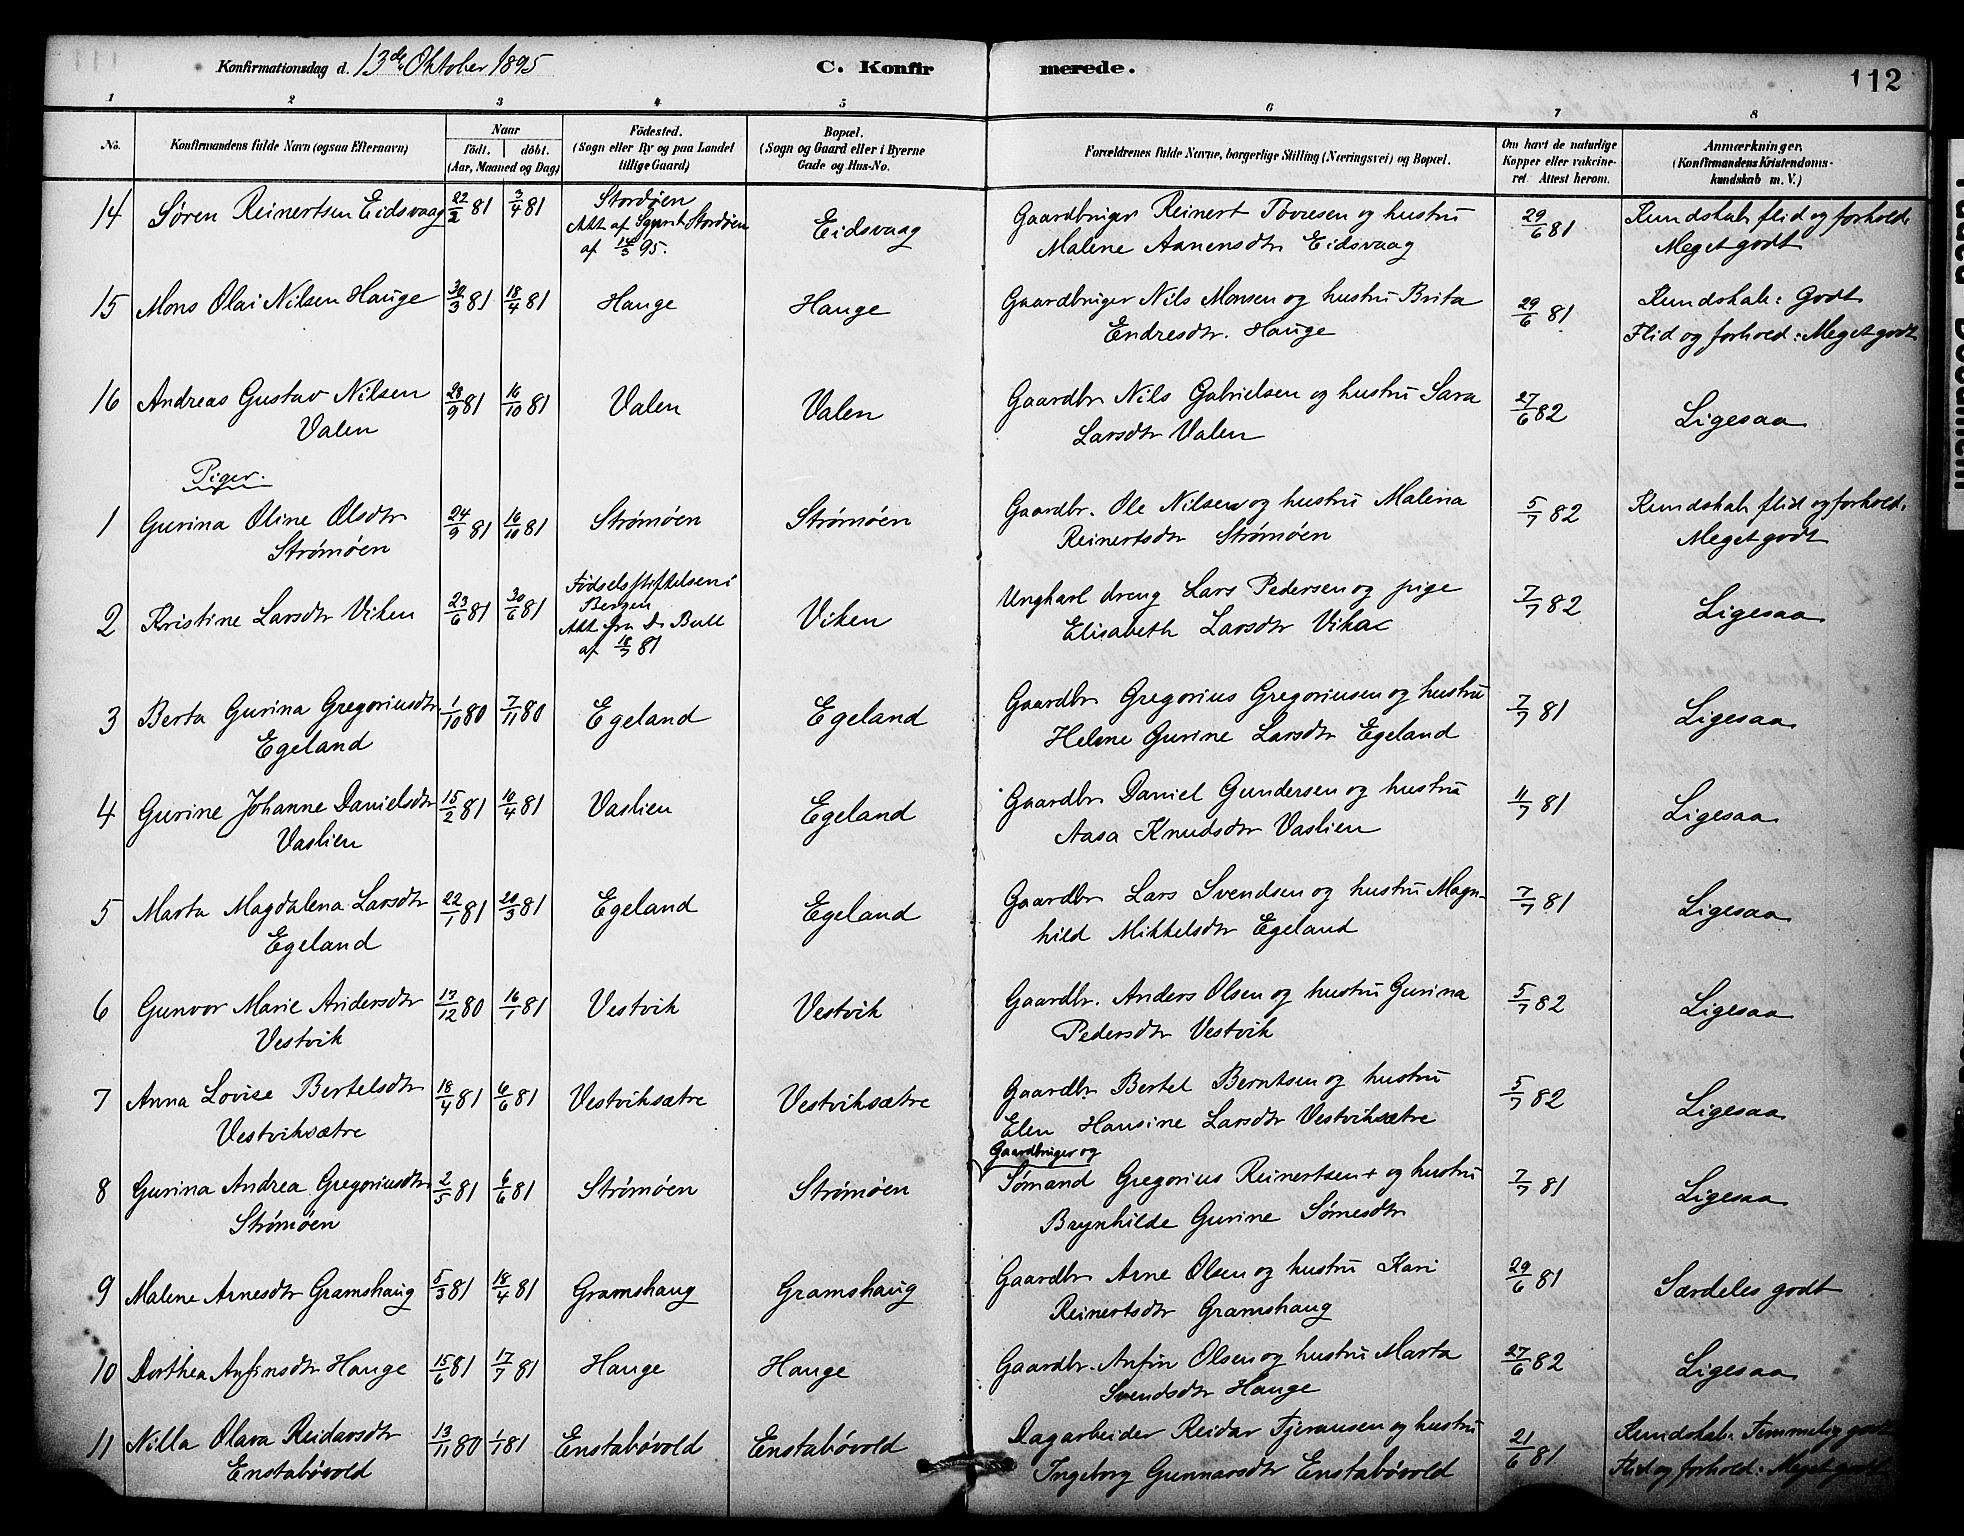 Konfirmationsdag d. 13de Oktober 1895 C. Konfirmerede. 112
1 2 3 4 5 6 7 8
No. Konfirmandens fulde Navn (ogsaa Efternavn) Naar Födt. döbt. (Aar, Maaned og Dag) Födested. (Sogn eller By og paa Landet tillige Gaard) Bopæl. (Sogn og Gaard eller i Byerne Gade og Hus-No. Forældrenes fulde Navne, borgerlige Stilling (Næringsvei) og Bopæl. Om havt de naturlige Kopper eller vakcineret. Attest herom. Anmærkninger. (Konfirmandens Kristendomskundskab m. V.)
14 Søren Reinertsen Eidsvaag 22/2 81 3/4 81 Stordøen Eidsvaag Gaardbruger Reinert Tovesen og hustru 29/6 81 Kundskab, flid og forhold:
Att af Sgprst Stordøen Malene Aanensdtr Eidsvaag Meget godt
af 14/5 95.
15 Mons Olai Nilsen Hauge 30/3 81 18/4 81 Hauge Hauge Gaardbruger Nils Monsen og hustru Brita 29/6 81 Kundskab: Godt
Endresdtr. Hauge Flid og forhold: Meget godt
16 Andreas Gustav Nilsen 28/9 81 16/10 81 Valen Valen Gaardbr Nils Gabrielsen og hustru Sara 27/6 82 Ligesaa
Valen Larsdtr Valen
Piger.
1 Gurina Oline Olsdtr 24/9 81 16/10 81 Strømøen Strømøen Gaardbr. Ole Nilsen og hustru Malena 5/7 82 Kundskab flid og forhold:
Strømøen Reinertsdtr Strømøen Meget godt
2 Kristine Larsdtr Viken 23/6 81 30/6 81 Födselsstiftelsen i Viken Ungkarl dreng Lars Pedersen og pige 7/7 82 Ligesaa
Bergen Elisabeth Larsdtr
Att fra Dr Bull
af 18/7 81
3 Berta Gurina Gregoriusdtr 1/10 80 7/11 80 Egeland Egeland Gaardbr Gregorius Gregoriusen og hustru 7/7 81 Ligesaa
Egeland Helene Gurine Larsdtr Egeland
4 Gurine Johanne Danielsdtr 15/2 81 10/4 81 Vaslien Egeland Gaardbr Daniel Gundersen og hustru 11/7 81 Ligesaa
Vaslien Aasa Knudsdtr Vaslien
5 Marta Magdalena Larsdtr 22/1 81 20/3 81 Egeland Egeland Gaardbr Lars Svendsen og hustru Magn- 7/7 81 Ligesaa
Egeland hild Mikkelsdtr Egeland
6 Gunvor Marie Andersdtr 17/12 80 16/1 81 Vestvik Vestvik Gaardbr. Anders Olsen og hustru Gurina 5/7 82 Ligesaa
Vestvik Pedersdtr Vestvik
7 Anna Lovise Bertelsdtr 18/4 81 6/6 81 Vestviksætre Vestviksætre Gaardbr Bertel Berntsen og hustru 5/7 82 Ligesaa
Vestviksætre Elen Hansine Larsdtr Vestviksætre
Gaardbruger og
8 Gurina Andrea Gregoriusdtr 2/5 81 6/6 81 Strømøen Strømøen Sømand Gregorius Reinertsen + og hustru 7/7 81 Ligesaa
Strømøen Brynhilde Gurine Sørnesdtr
9 Malene Arnesdtr Gramshaug 5/3 81 18/4 81 Gramshaug Gramshaug Gaardbr Arne Olsen og hustru Kari 29/6 81 Særdeles godt
Reinertsdtr Gramshaug
10 Dorthea Anfinsdtr Hauge 15/6 81 17/7 81 Hauge Hauge Gaardbr. Anfin Olsen og hustru Marta 27/6 82 Ligesaa
Svendsdtr Hauge
11 Nilla Olava Reidarsdtr 13/11 80 1/1 81 Enstabøvold Enstabøvold Dagarbeider Reidar Tjeransen og hustru 21/6 81 Kundskab: Temmelig godt
Enstabøvold Ingeborg Gunnarsdtr Enstabøvold Flid og forhold: Meget godt